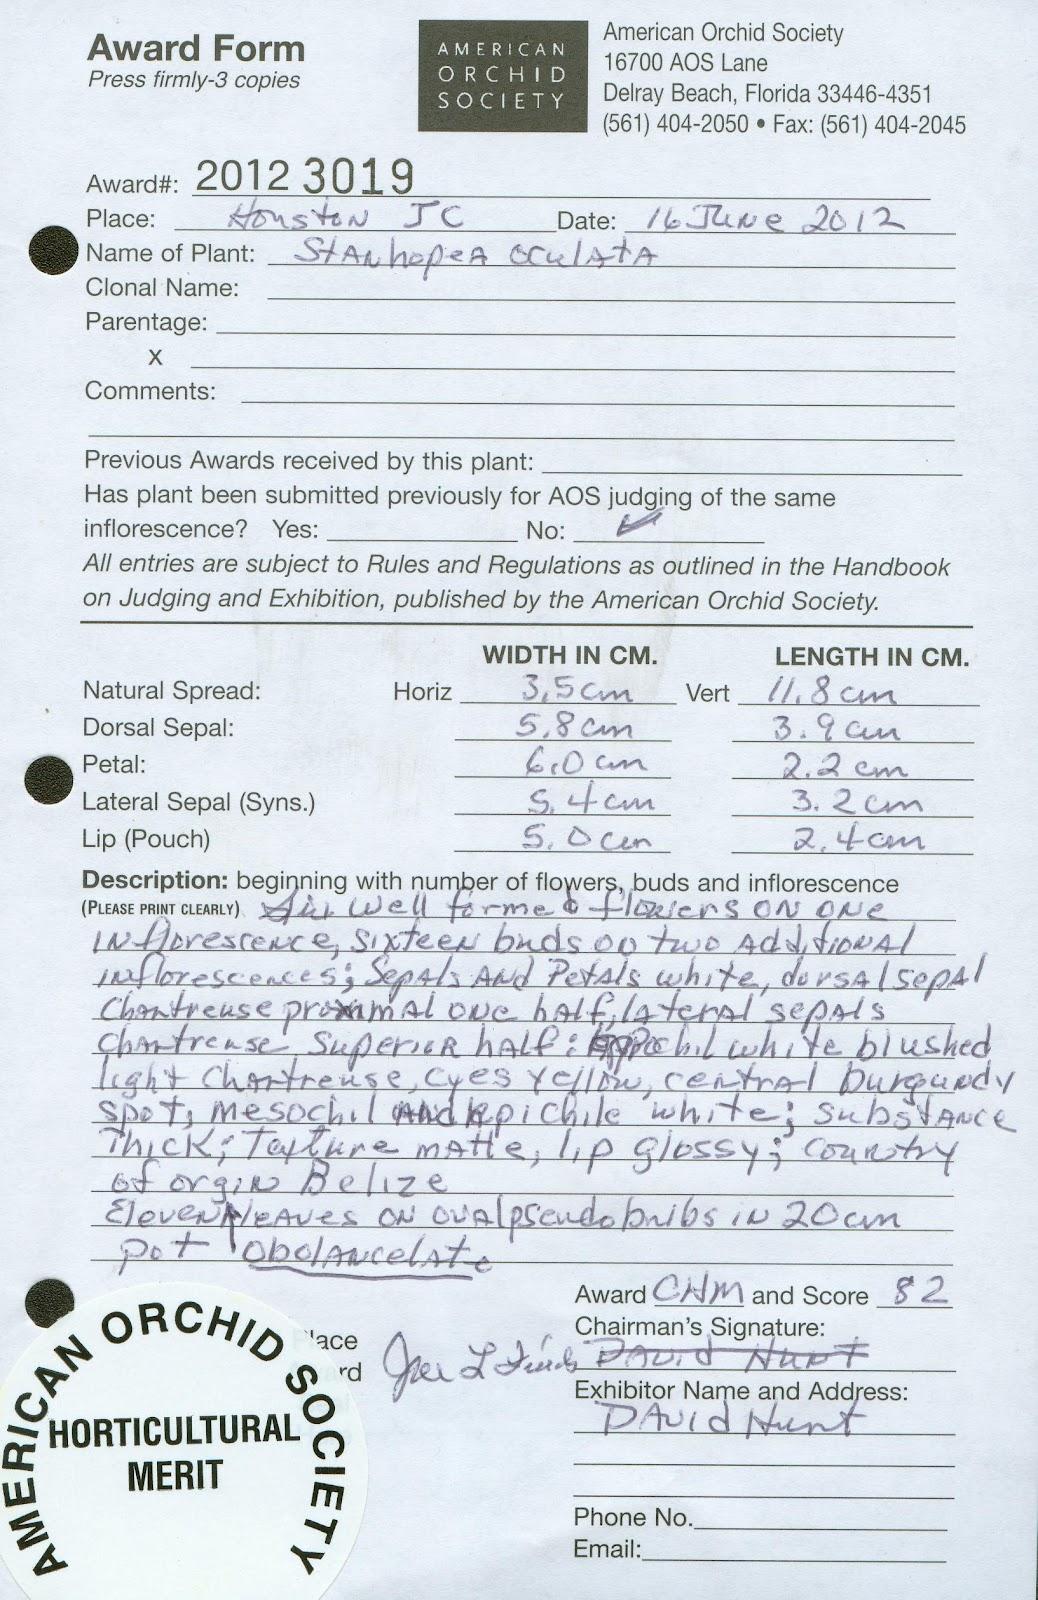 Award Form
Press firmly-3 copies
AMERICAN
ORCHID
SOCIETY
American Orchid Society
16700 AOS Lane
Delray Beach, Florida 33446-4351
(561) 404-2050 • Fax: (561) 404-2045
Award#: 2012 3019
Place: Houston JC Date: 16 June 2012
Name of Plant: Stanhopea oculata
Clonal Name:
Parentage:
x
Comments:
Previous Awards received by this plant:
Has plant been submitted previously for AOS judging of the same
inflorescence? Yes: No: ✓
All entries are subject to Rules and Regulations as outlined in the Handbook
on Judging and Exhibition, published by the American Orchid Society.
WIDTH IN CM. LENGTH IN CM.
Natural Spread: Horiz 3.5cm Vert 11.8cm
Dorsal Sepal: 5.8cm 3.9cm
Petal: 6.0cm 2.2cm
Lateral Sepal (Syns.) 5.4cm 3.2cm
Lip (Pouch) 5.0cm 2.4cm
Description: beginning with number of flowers, buds and inflorescence
(PLEASE PRINT CLEARLY) Six well formed flowers on one
inflorescence, sixteen buds on two additional
inflorescences; Sepals and Petals white, dorsal sepal
Chartreuse proximal one half, lateral sepals
chartreuse superior half; white blushed
light chartreuse, eyes yellow, central burgundy
spot, mesochil and epichile white; substance
thick; Texture matte, lip glossy; country
of orgin Belize
Eleven leaves on oval pseudobulbs in 20cm
pot obolancelate
Award CHM and Score 82
Chairman's Signature:
David Hunt
Place
rd
Exhibitor Name and Address:
David Hunt
Phone No.
Email:
AMERICAN ORCHID SOCIETY
HORTICULTURAL
MERIT